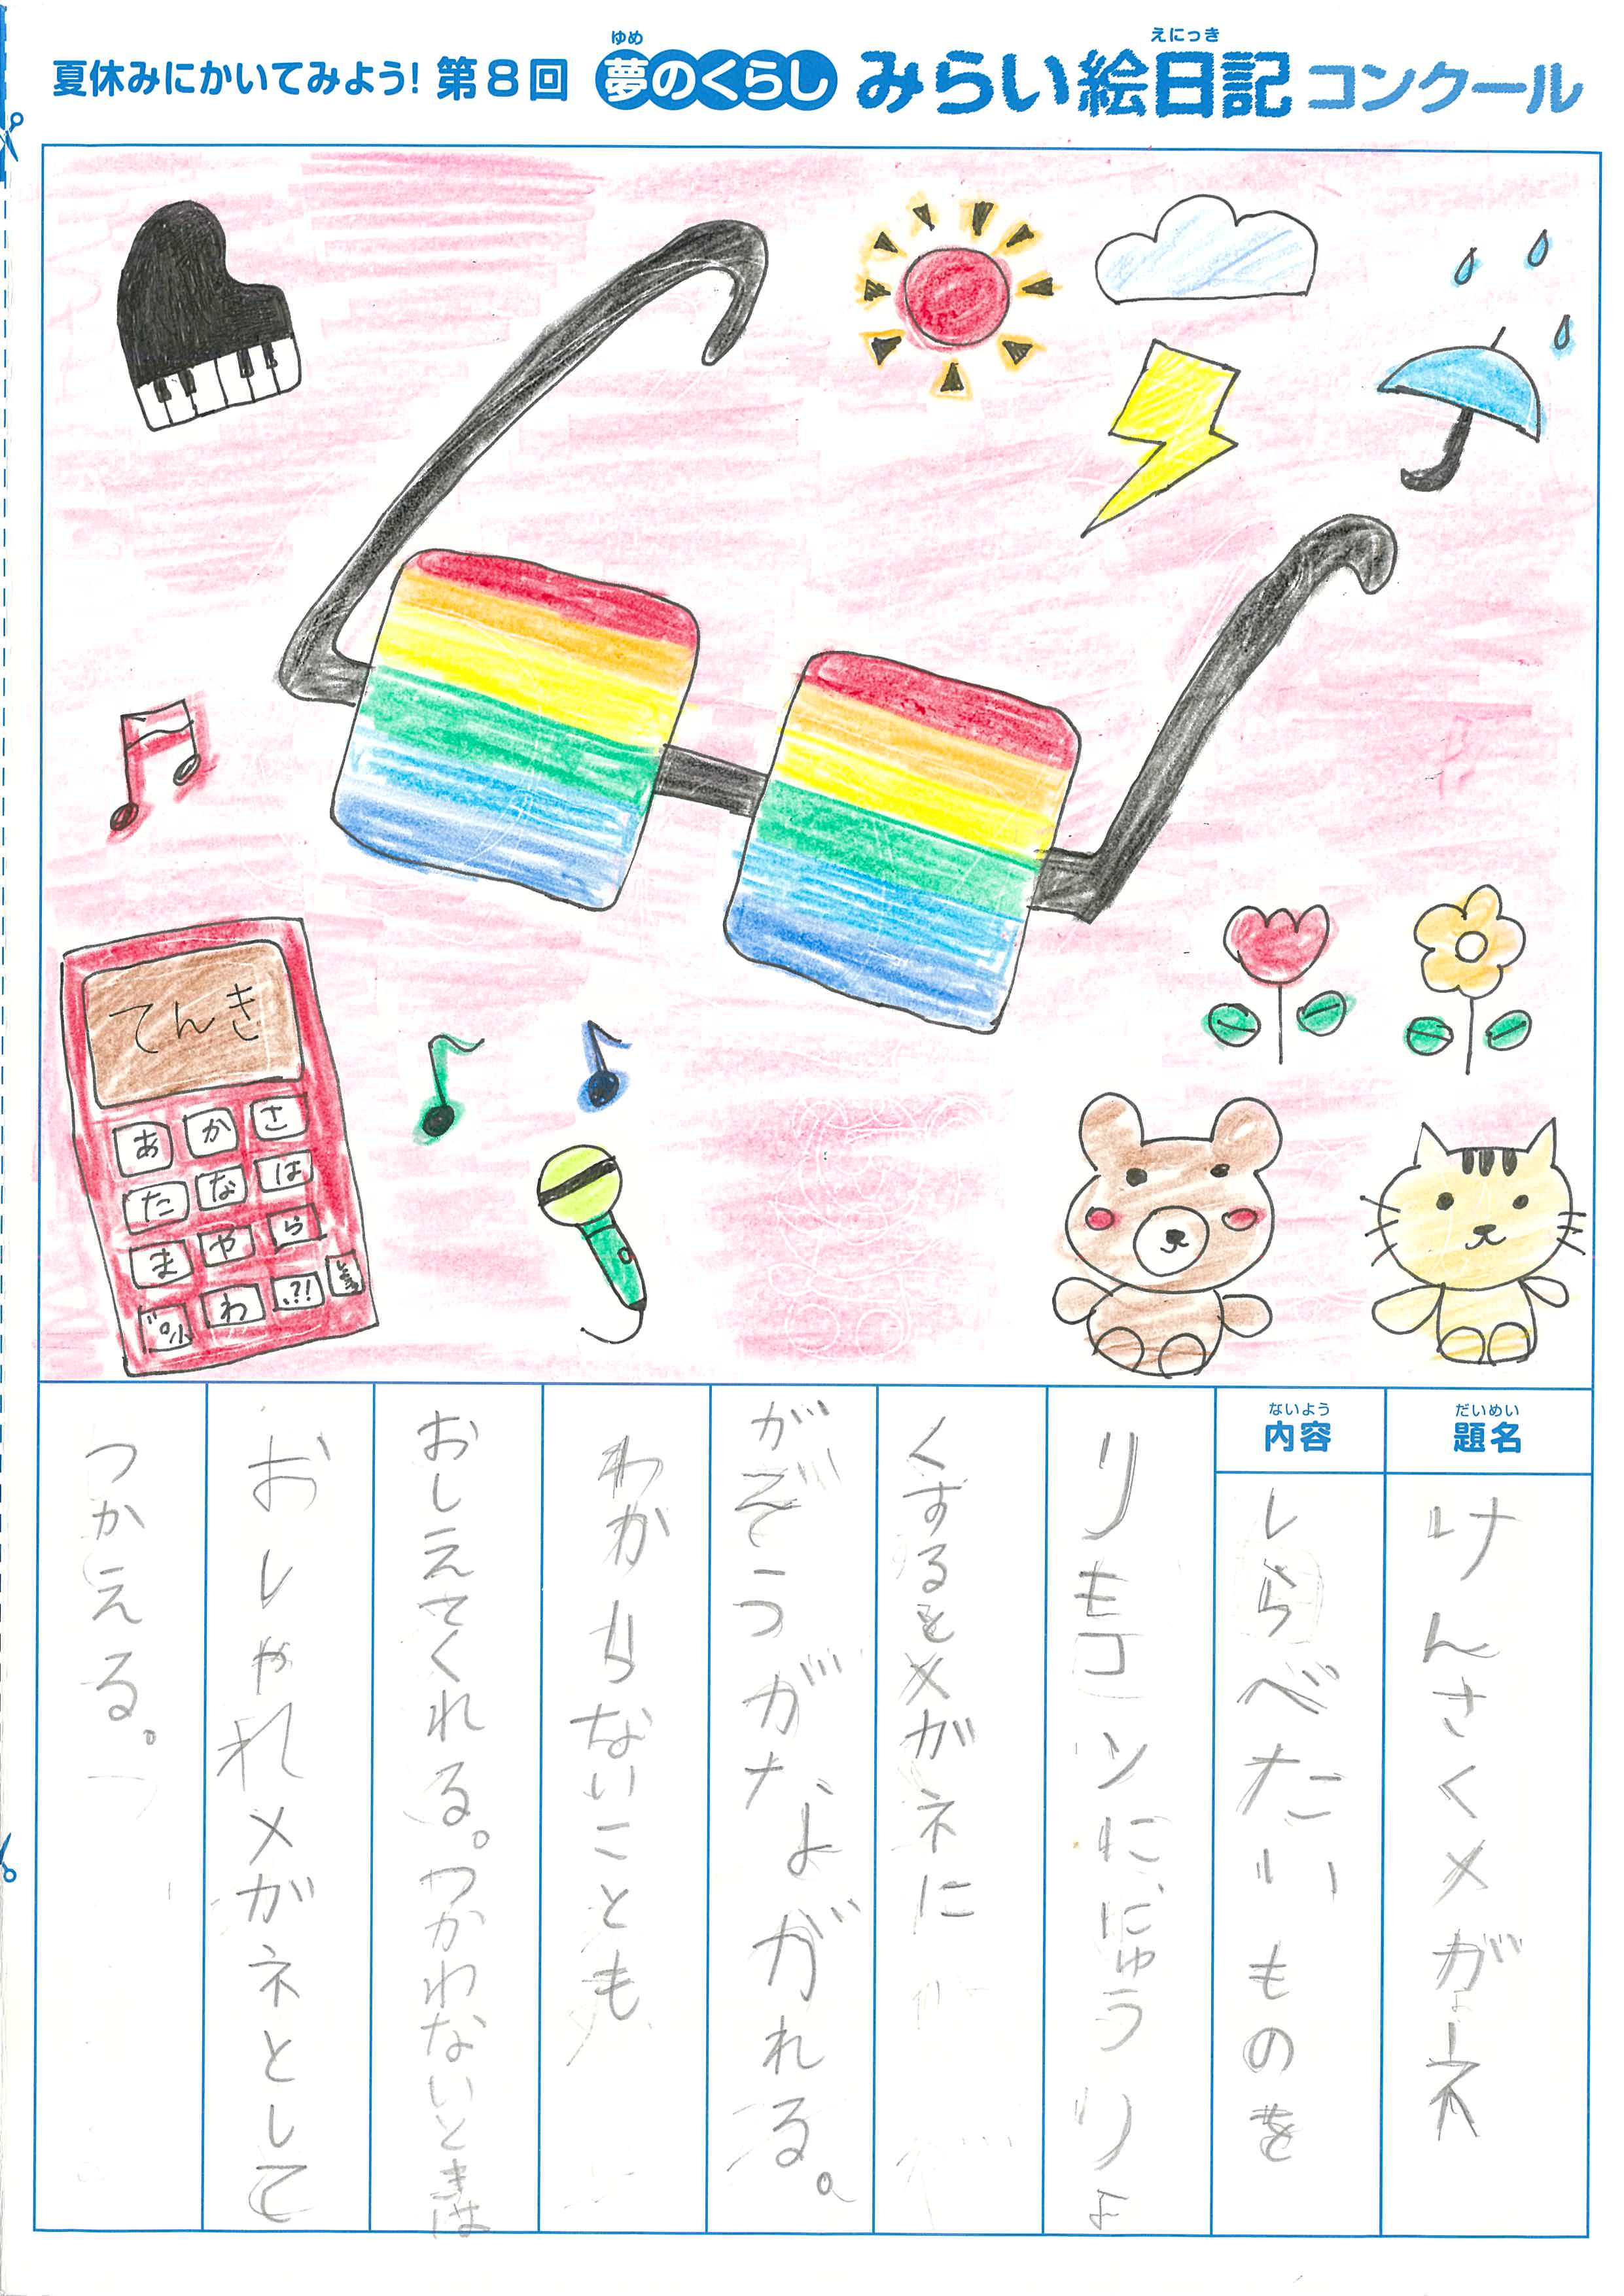 夏休みにかいてみよう! 第8回 夢のくらし みらい絵日記 コンクール
ゆめ
えにっき
てんき
あ か さ
た な は
ま や ら
わ .?!
だいめい
題名
けんさくメガネ
ないよう
内容
しらべたいものを
リモコンに、にゅうりょ
くするとメガネに
がぞうがながれる。
わからないことも
おしえてくれる。つかわないときは
おしゃれメガネとして
つかえる。